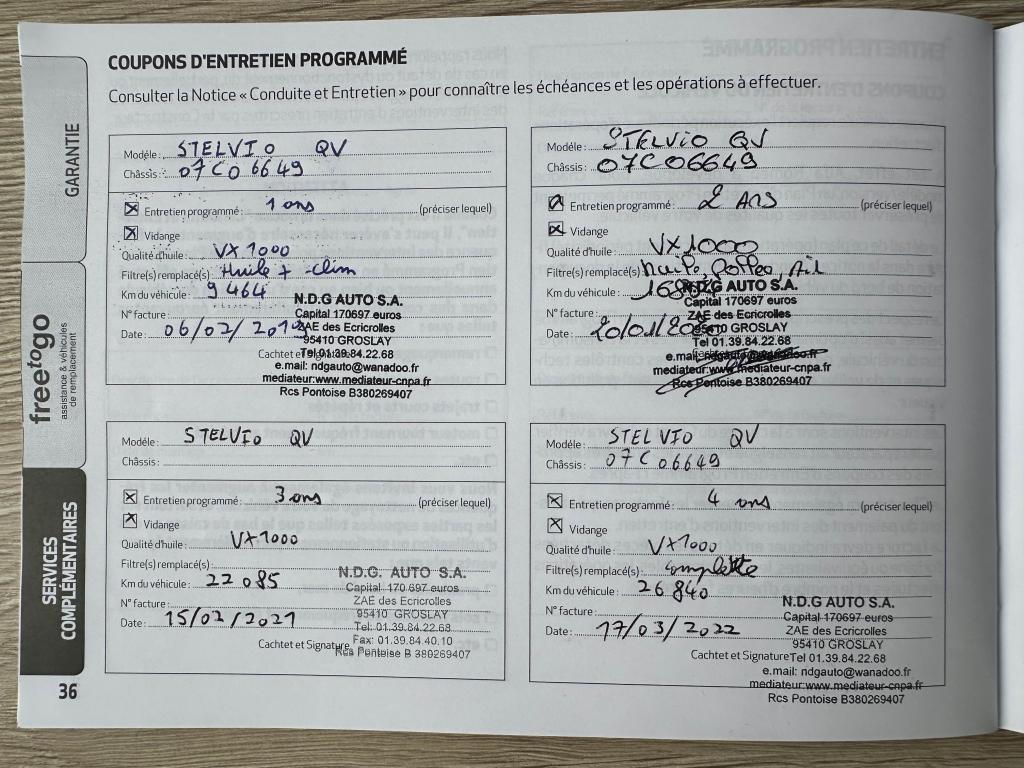 COUPONS D'ENTRETIEN PROGRAMMÉ
Consulter la Notice « Conduite et Entretien » pour connaître les échéances et les opérations à effectuer.
GARANTIE
freetogo
assistance & véhicules
de remplacement
SERVICES
COMPLÉMENTAIRES
36
Modéle: STELVIO QV
Châssis: 07C06649
Entretien programmé: 1 ans (préciser lequel)
Vidange
Qualité d'huile: VX1000
Filtre(s) remplacé(s): Huile + clim
Km du véhicule: 9464
N° facture:
Date: 06/02/2019
Cachtet et Signature
N.D.G AUTO S.A.
Capital 170697 euros
ZAE des Ecricrolles
95410 GROSLAY
Tel 01.39.84.22.68
e.mail: ndgauto@wanadoo.fr
mediateur:www.mediateur-cnpa.fr
Rcs Pontoise B380269407
Modéle: STELVIO QV
Châssis: 07C06649
Entretien programmé: 2 ANS (préciser lequel)
Vidange
Qualité d'huile: VX1000
Filtre(s) remplacé(s): huile, Pollen, Air
Km du véhicule:
N° facture:
Date: 20/01/
N.D.G AUTO S.A.
Capital 170697 euros
ZAE des Ecricrolles
95410 GROSLAY
Tel 01.39.84.22.68
e.mail: ndgauto@wanadoo.fr
mediateur:www.mediateur-cnpa.fr
Rcs Pontoise B380269407
Modéle: STELVIO QV
Châssis:
Entretien programmé: 3 ans (préciser lequel)
Vidange
Qualité d'huile: VX1000
Filtre(s) remplacé(s):
Km du véhicule: 22085
N° facture:
Date: 15/02/2021
Cachtet et Signature
N.D.G. AUTO S.A.
Capital 170 697 euros
ZAE des Ecricrolles
95410 GROSLAY
Tel: 01.39.84.22.68
Fax: 01.39.84.40.10
Rcs Pontoise B 380269407
Modéle: STELVIO QV
Châssis: 07C06649
Entretien programmé: 4 ans (préciser lequel)
Vidange
Qualité d'huile: VX1000
Filtre(s) remplacé(s): complette
Km du véhicule: 26840
N° facture:
Date: 17/03/2022
Cachtet et Signature
N.D.G AUTO S.A.
Capital 170697 euros
ZAE des Ecricrolles
95410 GROSLAY
Tel 01.39.84.22.68
e.mail: ndgauto@wanadoo.fr
mediateur:www.mediateur-cnpa.fr
Rcs Pontoise B380269407